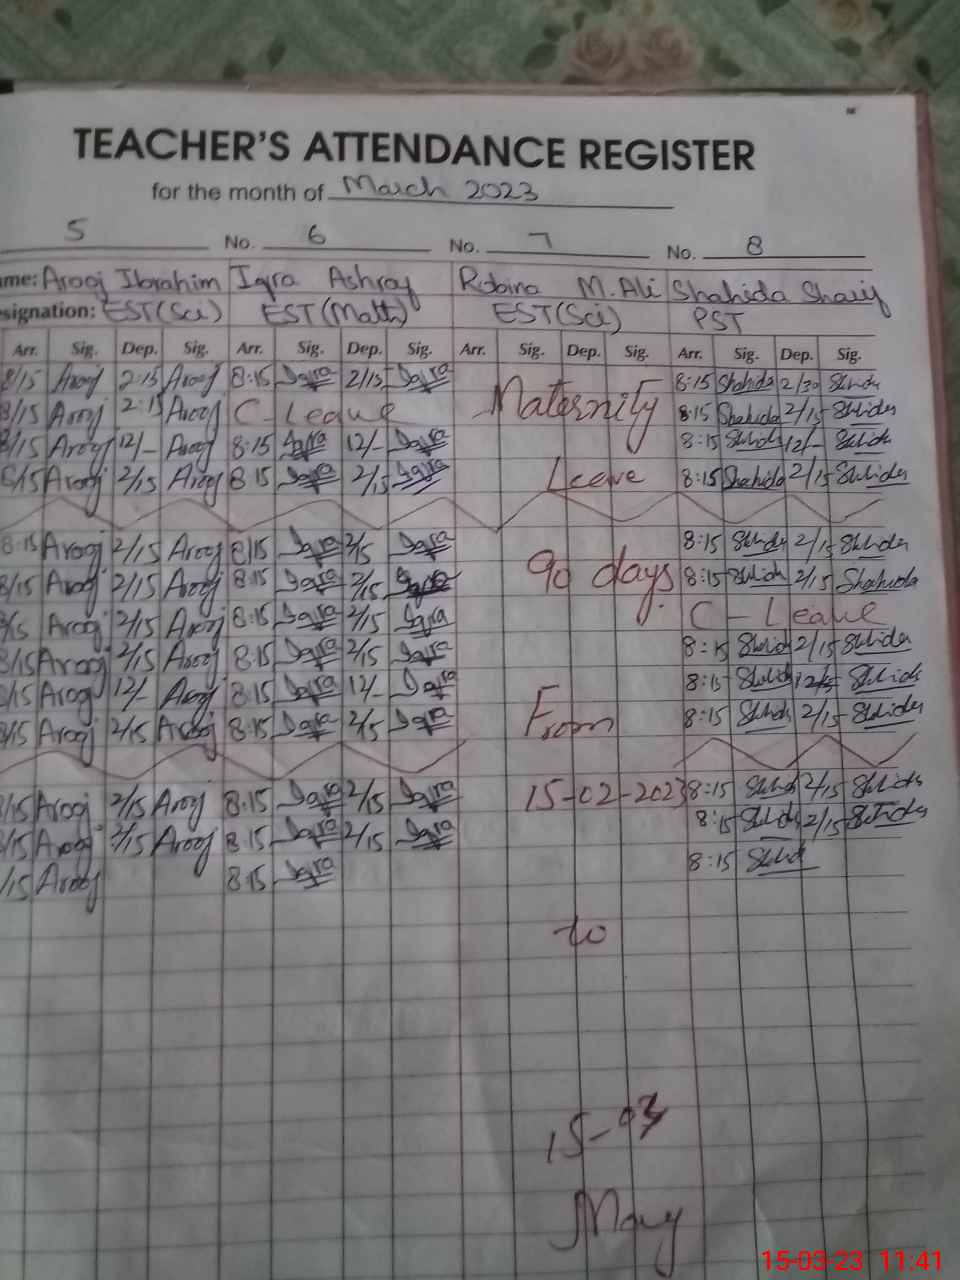 TEACHER'S ATTENDANCE REGISTER
for the month of March 2023
5 No. 6 No. 7 No. 8
me: Arooj Ibrahim Iqra Ashraf Robina M. Ali Shahida Sharif
signation: EST(Sci) EST(Math) EST(Sci) PST
Arr. Sig. Dep. Sig. Arr. Sig. Dep. Sig. Arr. Sig. Dep. Sig. Arr. Sig. Dep. Sig.
8/15 Arooj 2:15 Arooj 8:15 Iqra 2/15 Iqra Maternity 8:15 Shahida 2/30 Shahida
8/15 Arooj 2:15 Arooj C-Leave 8:15 Shahida 2/15 Shahida
8/15 Arooj 12/- Arooj 8:15 Iqra 12/- Iqra 8:15 Shahida 12/- Shahida
8/15 Arooj 2/15 Arooj 8:15 Iqra 2/15 Iqra Leave 8:15 Shahida 2/15 Shahida
8:15 Arooj 2/15 Arooj 8/15 Iqra 2/5 Iqra 90 days 8:15 Shahida 2/15 Shahida
8/15 Arooj 2/15 Arooj 8:15 Iqra 2/15 Iqra 8:15 Shahida 2/15 Shahida
8/15 Arooj 2/15 Arooj 8:15 Iqra 2/15 Iqra C-Leave
8/15 Arooj 2/15 Arooj 8:15 Iqra 2/15 Iqra 8:15 Shahida 2/15 Shahida
/15 Arooj 12/- Arooj 8:15 Iqra 12/- Iqra 8:15 Shahida Shahida
8/15 Arooj 2/15 Arooj 8:15 Iqra 2/5 Iqra From 8:15 Shahida 2/15 Shahida
/15 Arooj 2/15 Arooj 8:15 Iqra 2/15 Iqra 15-02-2023 8:15 Shahida 2/15 Shahida
/15 Arooj 2/15 Arooj 8:15 Iqra 2/15 Iqra 8:15 Shahida 2/15 Shahida
/15 Arooj 8:15 Iqra 8:15 Shahida
to
15-03
May
15-03-23 11:41